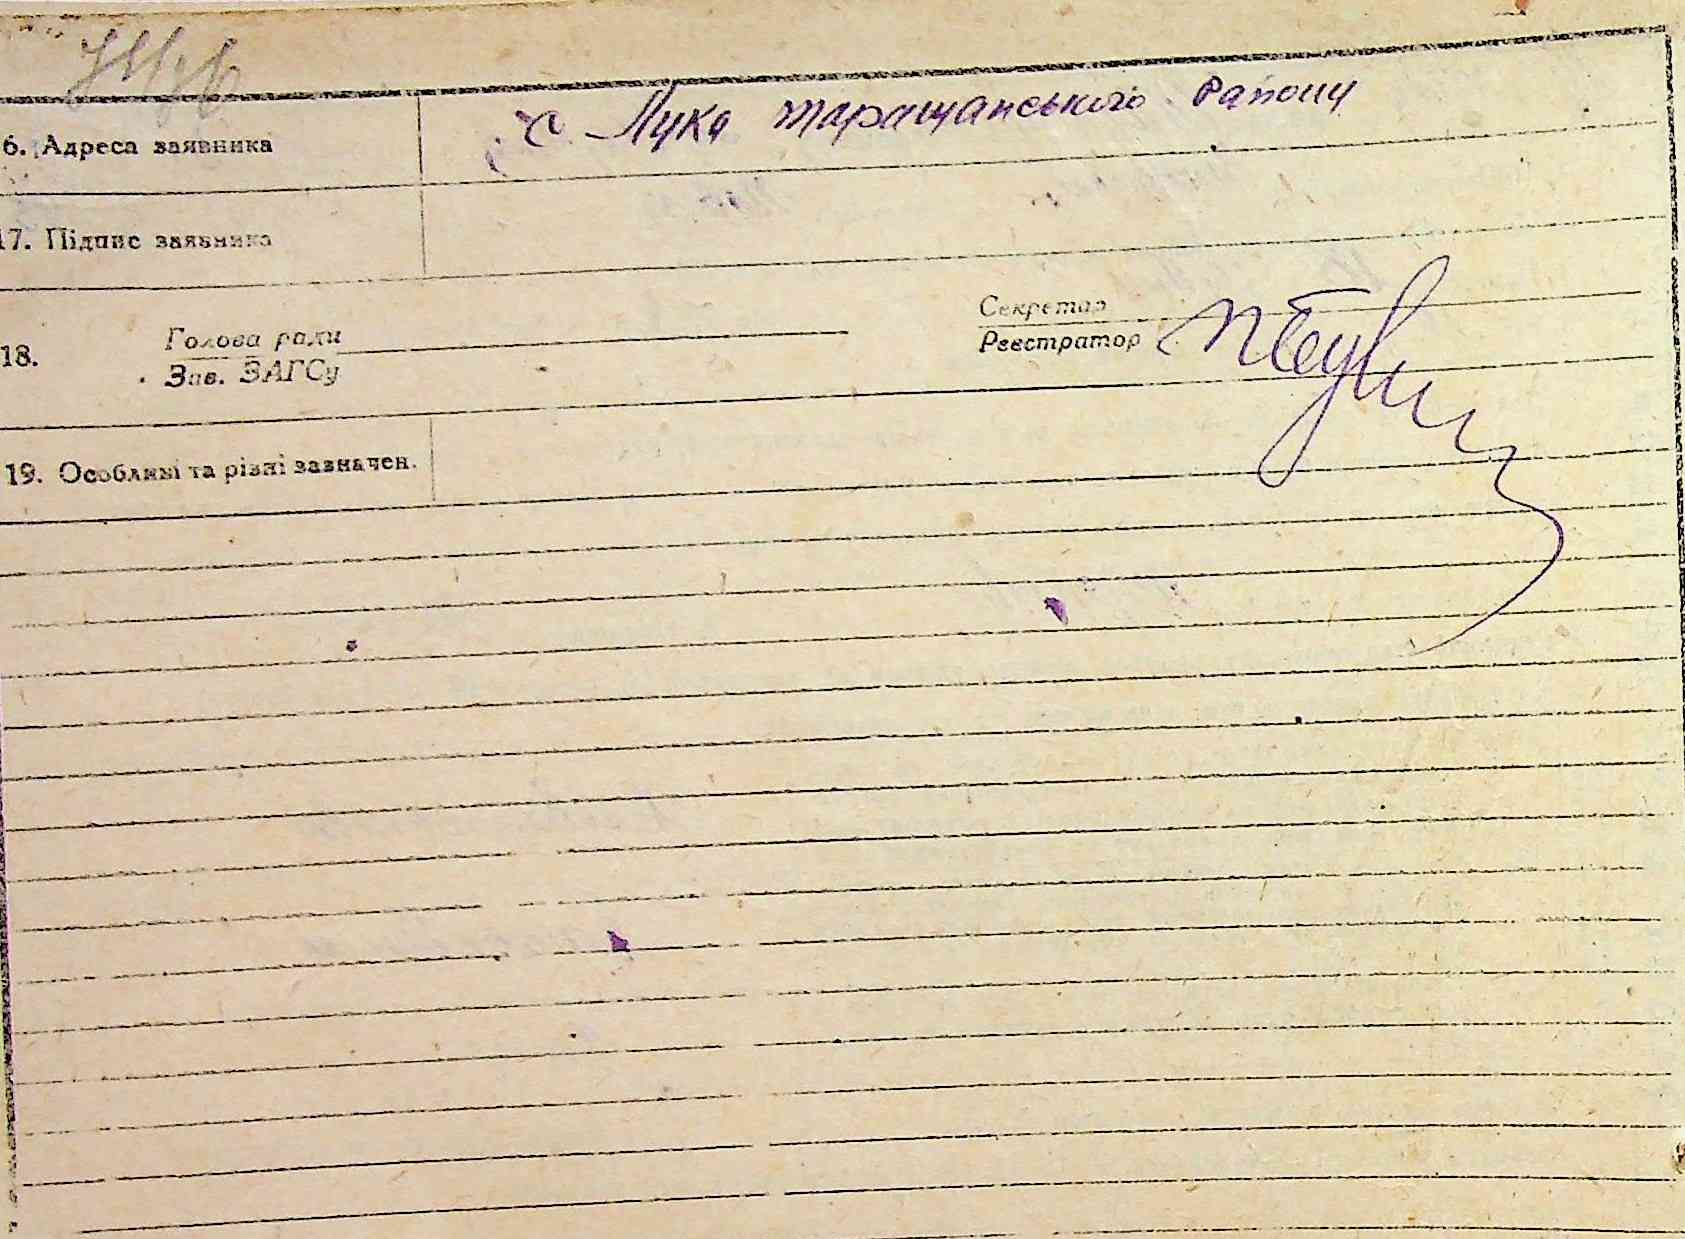 6. Адреса заявника с. Лука таращанського району
17. Підпис заявника
18. Голова ради
Зав. ЗАГСу
Секретар
Реєстратор
19. Особливі та різні зазначен.